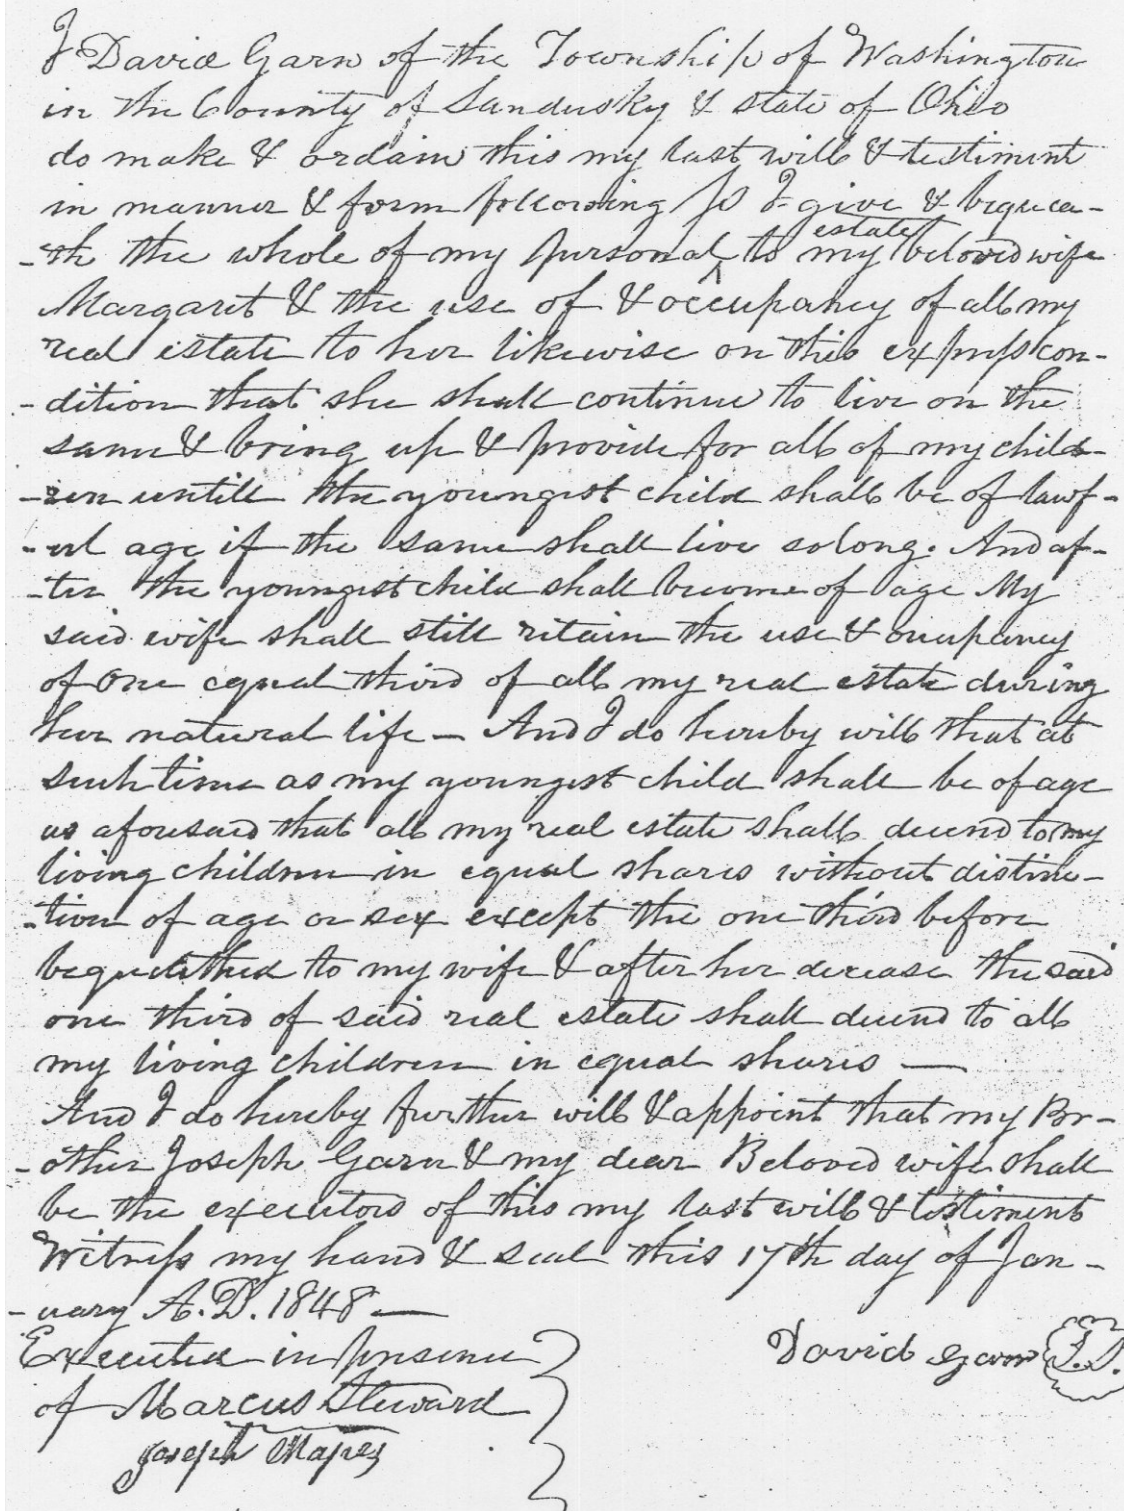 I David Garn of the Township of Washington
in the County of Sandusky & state of Ohio
do make & ordain this my last will & testiment
in manner & form following I give & bequea-
estate
-th the whole of my personal ^ to my beloved wife
Margaret & the use of & occupancy of all my
real estate to her likewise on this express con-
-dition that she shall continue to live on the
same & bring up & provide for all of my child-
-ren untill the youngest child shall be of lawf-
-ul age if the same shall live so long. And af-
-ter the youngest child shall become of age My
said wife shall still retain the use & occupancy
of one equal third of all my real estate during
her natural life — And I do hereby will that at
such time as my youngest child shall be of age
as aforesaid that all my real estate shall decend to my
living children in equal shares without distinc-
-tion of age or sex except the one third before
bequeathed to my wife & after her decease the said
one third of said real estate shall decend to all
my living children in equal shares —
And I do hereby further will & appoint that my Br-
-other Joseph Garn & my dear Beloved wife shall
be the executors of this my last will & testiment
Witness my hand & seal this 17th day of Jan-
-uary A.D. 1848 —
Executed in presence
of Marcus Steward
Joseph Mapes
David Garn